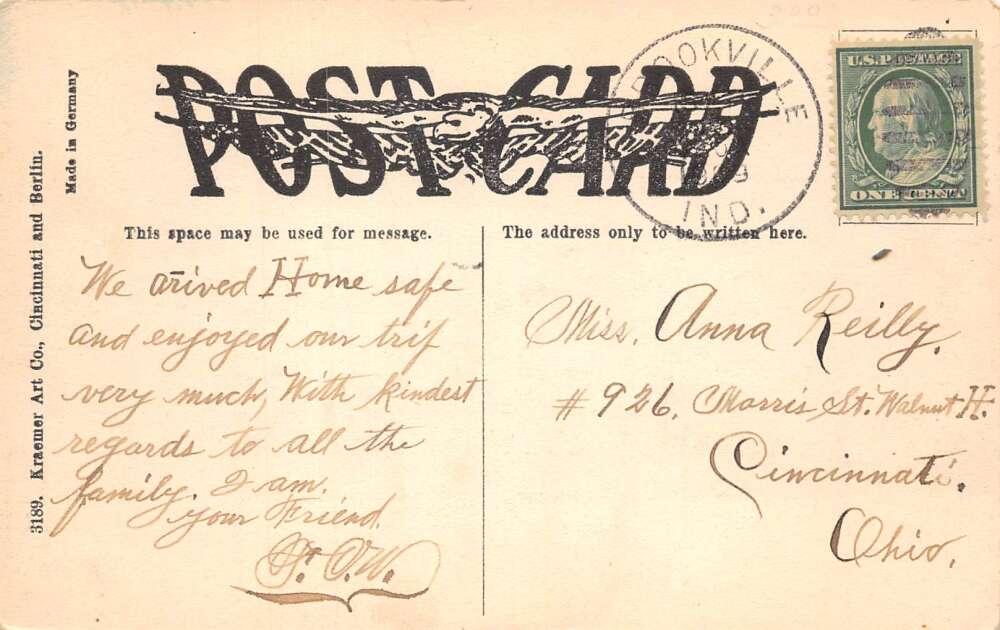 3189. Kraemer Art Co., Cincinnati and Berlin.
Made in Germany
POST CARD
BROOKVILLE
IND.
U.S. POSTAGE
ONE CENT
This space may be used for message.
The address only to be written here.
We arived Home safe
and enjoyed our trip
very much, With kindest
regards to all the
family. I am.
your Friend.
O.W.
Miss. Anna Reilly.
# 926. Morris St. Walnut H.
Cincinnati.
Ohio.